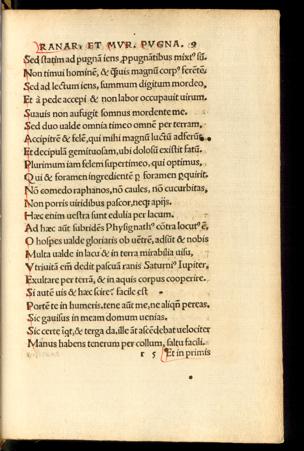 RANAR. ET MVR. PVGNA. 9
Sed statim ad pugnā iens, ꝓpugnātibus mixtꝰ sū.
Non timui hominē, & q̃uis magnū corpꝰ ferētē.
Sed ad lectum iens, summum digitum mordeo,
Et à pede accepi & non labor occupauit uirum.
Suauis non aufugit somnus mordente me.
Sed duo ualde omnia timeo omnē per terram,
Accipitrē & felē, qui mihi magnū luctū adferūt.
Et decipulā gemituosam, ubi dolosū existit fatū.
Plurimum iam felem supertimeo, qui optimus,
Qui & foramen ingredientē ꝑ foramen ꝑquirit.
Nō comedo raphanos, nō caules, nō cucurbitas,
Non porris uiridibus pascor, neq; apijs.
Hæc enim uestra sunt edulia per lacum.
Ad hæc aūt subridēs Physignathꝰ cōtra locutꝰ ē,
O hospes ualde gloriaris ob uētrē, adsūt & nobis
Multa ualde in lacu & in terra mirabilia uisu,
Vtriuiā em̄ dedit pascuā ranis Saturniꝰ Iupiter,
Exultare per terrā, & in aquis corpus cooperire.
Si autē uis & hæc scire, facile est
Portē te in humeris, tene aūt me, ne aliqñ pereas,
Sic gauisus in meam domum uenias.
Sic certe īgt, & terga da, ille āt ascēdebat uelociter
Manus habens tenerum per collum, saltu facili.
r 5 Et in primis